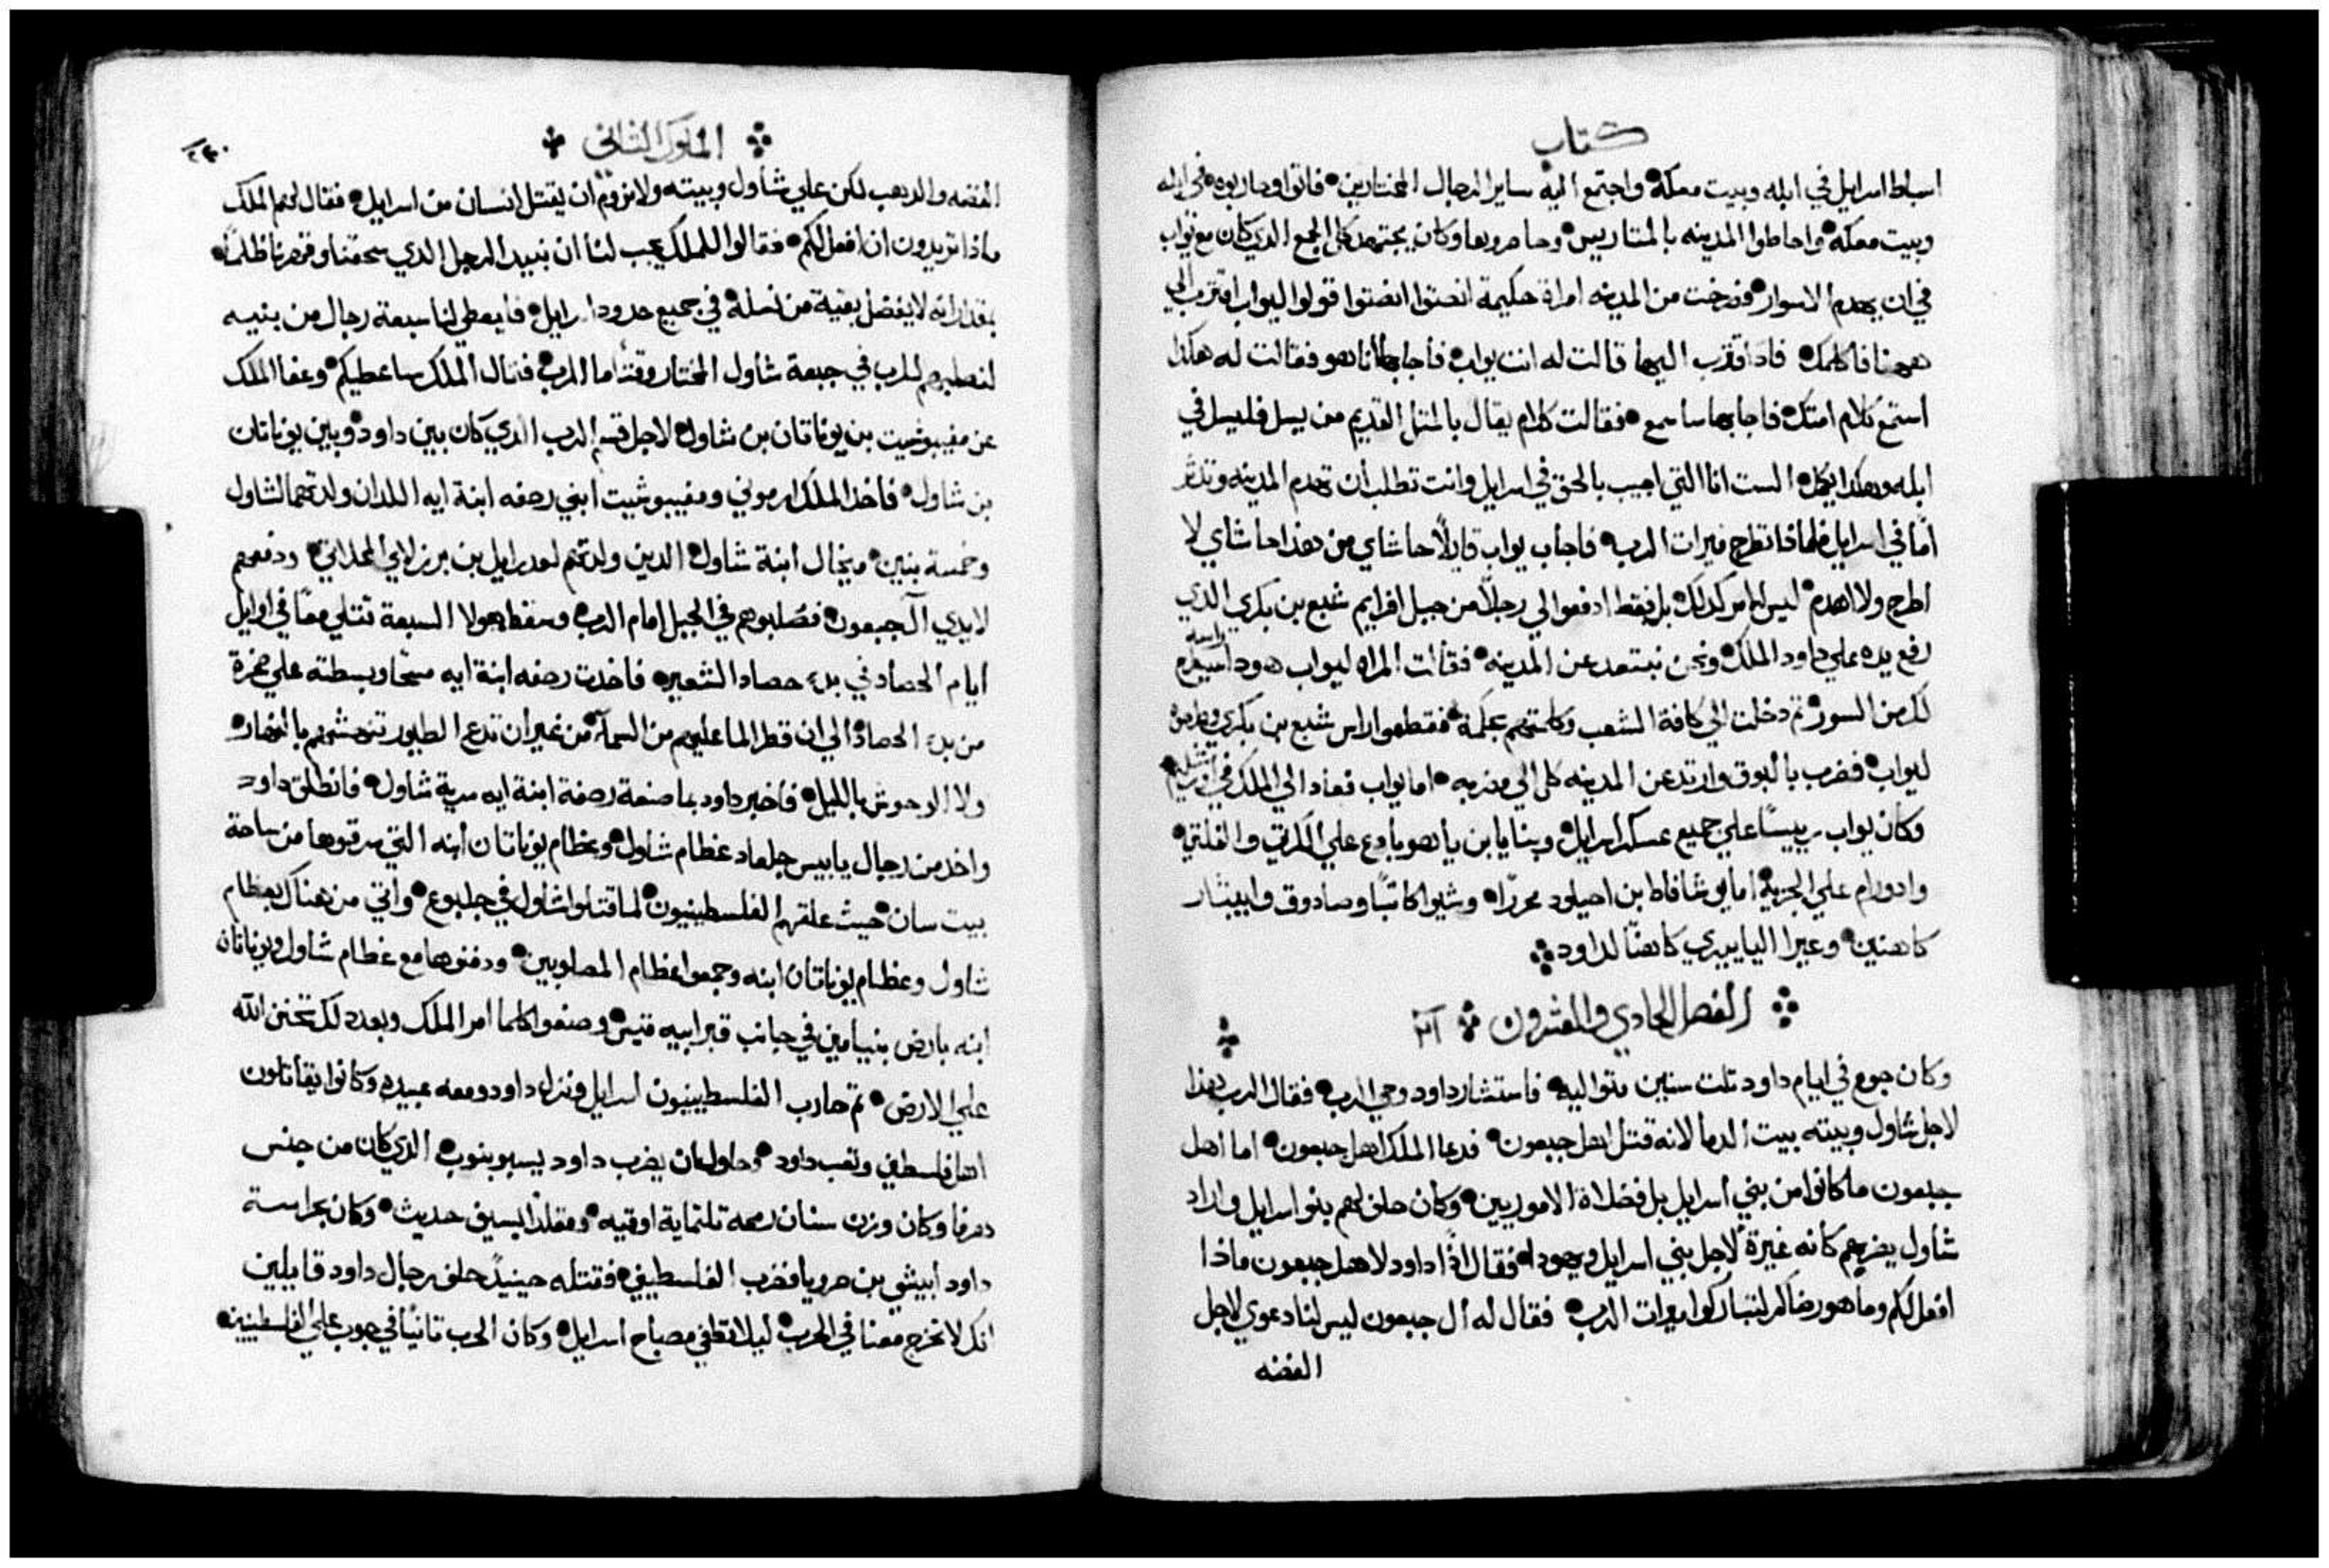 كتاب
اسباط اسرايل في ابله وبيت معكة واجتمع اليه ساير الرجال المختارين فاتوا وحاربوه في ابله
وبيت معكة واحاطوا المدينه بالمتاريس وحاصروها وكان يجتهد كل الجمع الدي كان مع يواب
في ان يهدم الاسوار فصرخت من المدينه امراة حكيمة انصتوا انصتوا قولوا ليواب اقترب الي
ههنا فاكلمك فادا اقترب اليها قالت له انت يواب فاجابها أنا هو فقالت له هكذا
استمع كلام امتك فاجابها سامع فقالت كلام يقال بالمثل القديم من يسل فليسل في
ابله وهكدا يكمل الست انا التي اجيب بالحق في اسرايل وانت تطلب أن تهدم المدينه وتدثر
امًا في اسرايل فلماذا تطرح ميرات الرب فاجاب يواب قايلًا حاشاي من هذا حاشاي لا
اطرح ولا اهدم ليس الامر كدلك بل فقط ادفعوا لي رجلًا من جبل افرايم شبع بن بكري الدي
رفع يده علي داود الملك ونحن نبتعد عن المدينه فقالت المراه ليواب هودا راسه سيطرح
لك من السور ثم دخلت الي كافة الشعب وكلمتهم بحكمة فقطعوا راس شبع بن بكري وطرحوه
ليواب فضرب بالبوق وارتد عن المدينه كل الي مضربه اما يواب فعاد الي الملك في اورشليم
وكان يواب رييسًا علي جميع عسكر اسرايل وبنايا بن يا هو يادع علي الكريتي والفلتي
وادورام علي الجزية اما يوشافاط بن احيلود محررًا وشيوا كاتبًا وصادوق وابيثار
كاهنين وعيرا الياييري كاهنًا لداود
الفصل الحادي والعشرون ٢١
وكان جوع في ايام داود تلت سنين متواليه فاستشار داود وحي الرب فقال الرب هذا
لاجل شاول وبيته بيت الدما لانه قتل اهل جبعون فدعا الملك اهل جبعون اما اهل
جبعون ما كانوا من بني اسرايل بل فضلاة الاموريين وكان حلف لهم بنو اسرايل واراد
شاول يضربهم كانه غيرة لاجل بني اسرايل ويهودا فقال اذًا داود لاهل جبعون ماذا
افعل لكم وما هو رضاكم لتباركوا ميرات الرب فقال له أل جبعون ليس لنا دعوي لاجل
الفضه
الملوك الثاني
٢٤٠
الفضه والدهب لكن علي شاول وبيته ولا نروم ان يقتل انسان من اسرايل فقال لهم الملك
ماذا تريدون ان افعل لكم فقالوا للملك يجب لنا ان نبيد الرجل الدي سحقنا وقهرنا ظلمًا
بمقدار انه لا يفضل بقية من نسله في جميع حدود اسرايل فليعطي لنا سبعة رجال من بنيه
لنصلبهم للرب في جبعة شاول المختار وقتًا ما للرب فقال الملك ساعطيكم وعفا الملك
عن مفيبوشيت بن يوناتان بن شاول لاجل قسم الرب الدي كان بين داود وبين يوناتان
بن شاول فاخد الملك ارموني ومفيبوشيت ابني رصفه ابنة ايه اللدان ولدتهما لشاول
وخمسة بنين ميخال ابنة شاول الدين ولدتهم لعدرايل بن برزلاي المحلاتي ودفعهم
لايدي آل جبعون فصلبوهم في الجبل امام الرب وسقط هولا السبعة قتلي معًا في اوايل
أيام الحصاد في بدء حصاد الشعير فاخدت رصفه ابنة ايه مسحًا وبسطته علي صخرة
من بدء الحصاد الي ان قطر الما عليهم من السمآ من غير ان تدع الطيور تنهشهم بالنهار
ولا الوحوش بالليل فاخبر داود بما صنعة رصفة ابنة ايه سرية شاول فانطلق داود
واخد من رجال يابيس جلعاد عظام شاول وعظام يوناتان أبنه التي سرقوها من ساحة
بيت سان حيث علقهم الفلسطينيون لما قتلوا شاول في جلبوع واتي من هناك بعظام
شاول وعظام يوناتان ابنه وجمعوا عظام المصلوبين ودفنوها مع عظام شاول ويوناتان
ابنه بارض بنيامين في جانب قبر ابيه قيس وصنعوا كلما امر الملك وبعد دلك تحنن الله
علي الارض ثم حارب الفلسطينيون اسرايل فنزل داود ومعه عبيده وكانوا يقاتلون
اهل فلسطين وتعب داود وحاول ان يضرب داود يسبوبنوب الدي كان من جنس
هرفا وكان وزن سنان رمحه تلتماية اوقيه ومقلدًا بسيف حديث وكان بحراسة
داود أبيشي بن صرويا فضرب الفلسطيني فقتله حينيدٍ حلف رجال داود قايلين
انك لا تخرج معنا في الحرب ليلا تطفي مصباح أسرايل وكان الحرب تانيًا في جوب علي الفلسطينيين